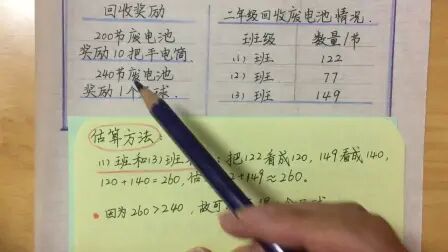 回收奖励
200节废电池
奖励10把手电筒
240节废电池
奖励1个 球.
二年级回收废电池情况.
班级 数量/节
(1)班 122
(2)班 77
(3)班 149
估算方法:
(1)班和(3)班 : 把122看成120, 149看成140,
120+140=260, 估 2+149≈260.
因为260>240, 故可